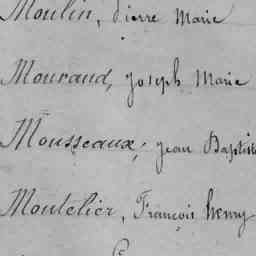 Moulin, Pierre Marie
Mouraud, Joseph Marie
Mousseaux, Jean Baptiste
Moutelier, François henry